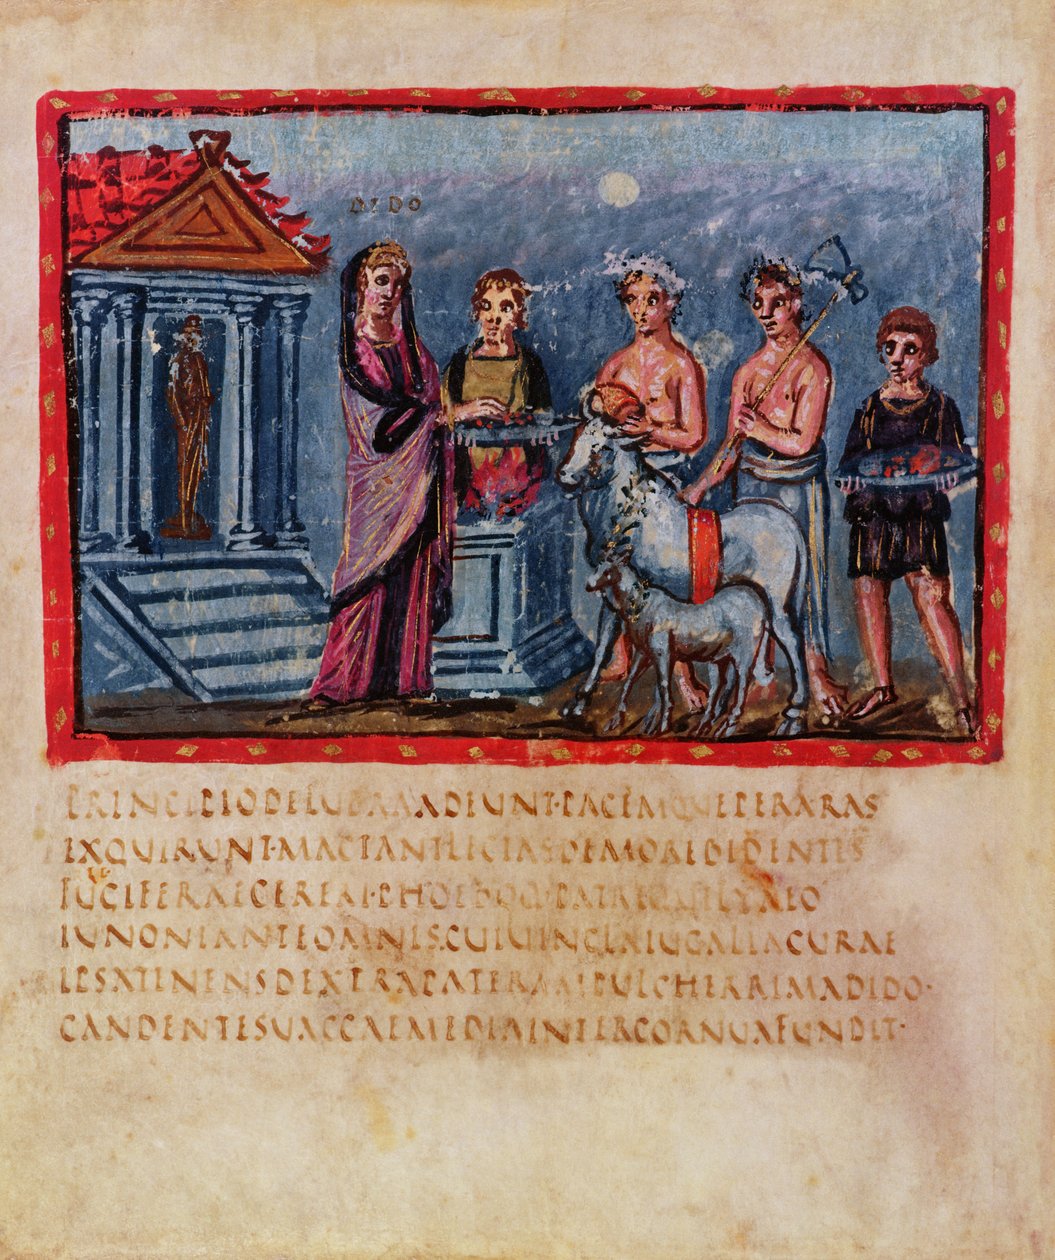 DIDO
PRINCIPIODELUBRAADEUNT·PACEMQUEPERARAS
EXQUIRUNT·MACTANTLECTASDEMOREBIDENTES
LUCIFERAECERERI·PHOEBOQ·PATRIQUELYAEO
IUNONIANTEOMNIS·CUIUINCLAIUGALIACURAE
IPSATENENSDEXTRAPATERAMPULCHERRIMADIDO·
CANDENTESUACCAEMEDIAINTERCORNUAFUNDIT·